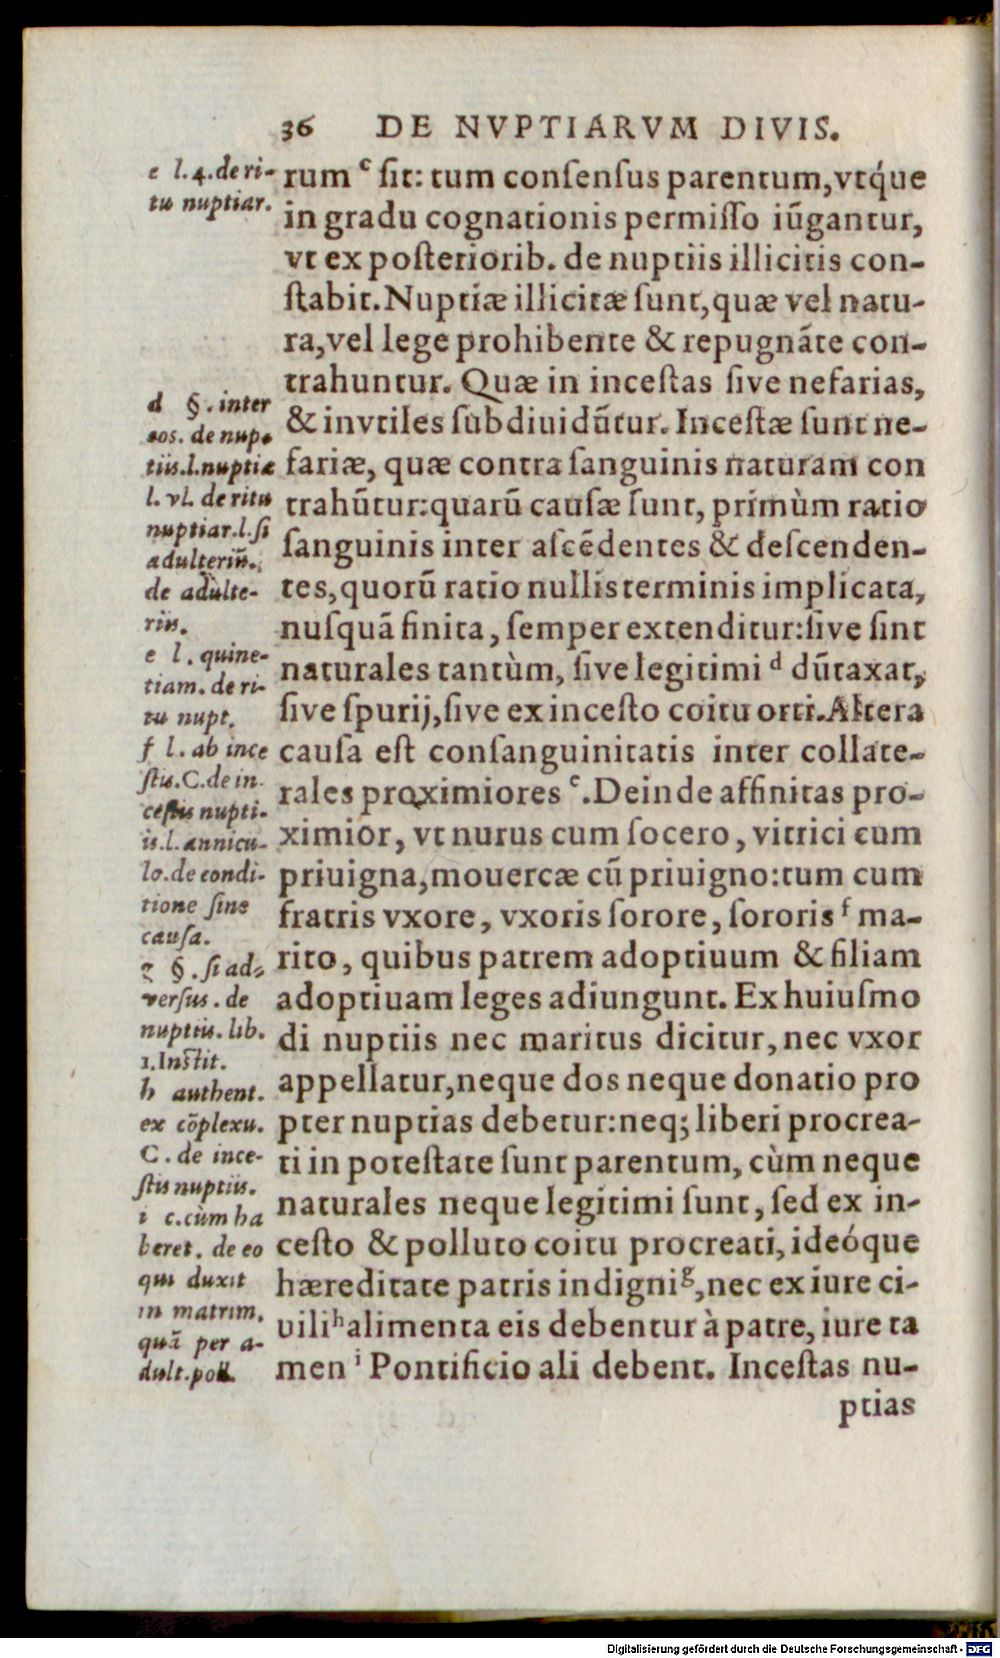 36 DE NVPTIARVM DIVIS.
rum ᶜ ſit: tum conſenſus parentum, vtq́ue
in gradu cognationis permiſſo iūgantur,
vt ex poſteriorib. de nuptiis illicitis con-
ſtabit. Nuptiæ illicitæ ſunt, quæ vel natu-
ra, vel lege prohibente & repugnāte con-
trahuntur. Quæ in inceſtas ſive nefarias,
& invtiles ſubdiuidūtur. Inceſtæ ſunt ne-
fariæ, quæ contra ſanguinis naturam con
trahūtur: quarū cauſæ ſunt, primùm ratio
ſanguinis inter aſcēdentes & deſcenden-
tes, quorū ratio nullis terminis implicata,
nuſquā finita, ſemper extenditur: ſive ſint
naturales tantùm, ſive legitimi ᵈ dūtaxat,
ſive ſpurij, ſive ex inceſto coitu orti. Altera
cauſa eſt conſanguinitatis inter collate-
rales proximiores ᵉ. Deinde affinitas pro-
ximior, vt nurus cum ſocero, vitrici cum
priuigna, mouercæ cū priuigno: tum cum
fratris vxore, vxoris ſorore, ſororis ᶠ ma-
rito, quibus patrem adoptiuum & filiam
adoptiuam leges adiungunt. Ex huiuſmo
di nuptiis nec maritus dicitur, nec vxor
appellatur, neque dos neque donatio pro
pter nuptias debetur: neq; liberi procrea-
ti in poteſtate ſunt parentum, cùm neque
naturales neque legitimi ſunt, ſed ex in-
ceſto & polluto coitu procreati, ideóque
hæreditate patris indigni ᵍ, nec ex iure ci-
uili ʰ alimenta eis debentur à patre, iure ta
men ⁱ Pontificio ali debent. Inceſtas nu-
ptias
c l. 4. de ri-
tu nuptiar.
d §. inter
eos. de nup-
tiis. l. nuptiæ
l. vl. de ritu
nuptiar. l. ſi
adulteriū.
de adulte-
riis.
e l. quine-
tiam. de ri-
tu nupt.
f l. ab ince
ſtis. C. de in-
ceſtis nupti-
is. l. annicu-
lo. de condi-
tione ſine
cauſa.
g §. ſi ad-
verſus. de
nuptiis. lib.
1. Inſtit.
h authent.
ex cōplexu.
C. de ince-
ſtis nuptiis.
i c. cùm ha
beret. de eo
qui duxit
in matrim.
quā per a-
dult. poll.
Digitalisierung gefördert durch die Deutsche Forschungsgemeinschaft - DFG